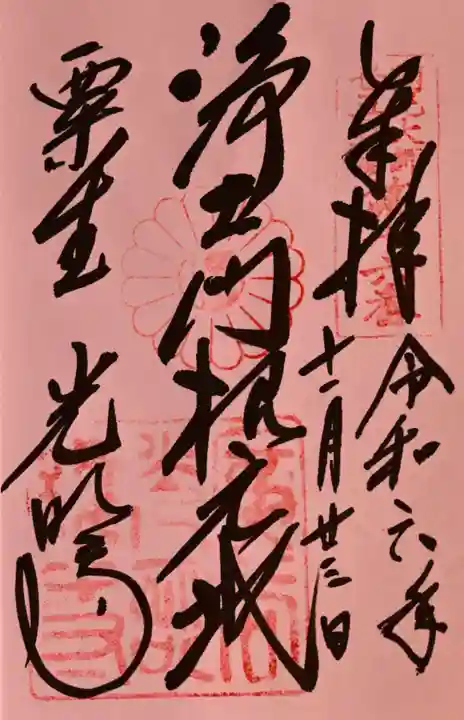 奉拝
令和六年
十一月廿三日
浄土門根元地
粟生
光明寺